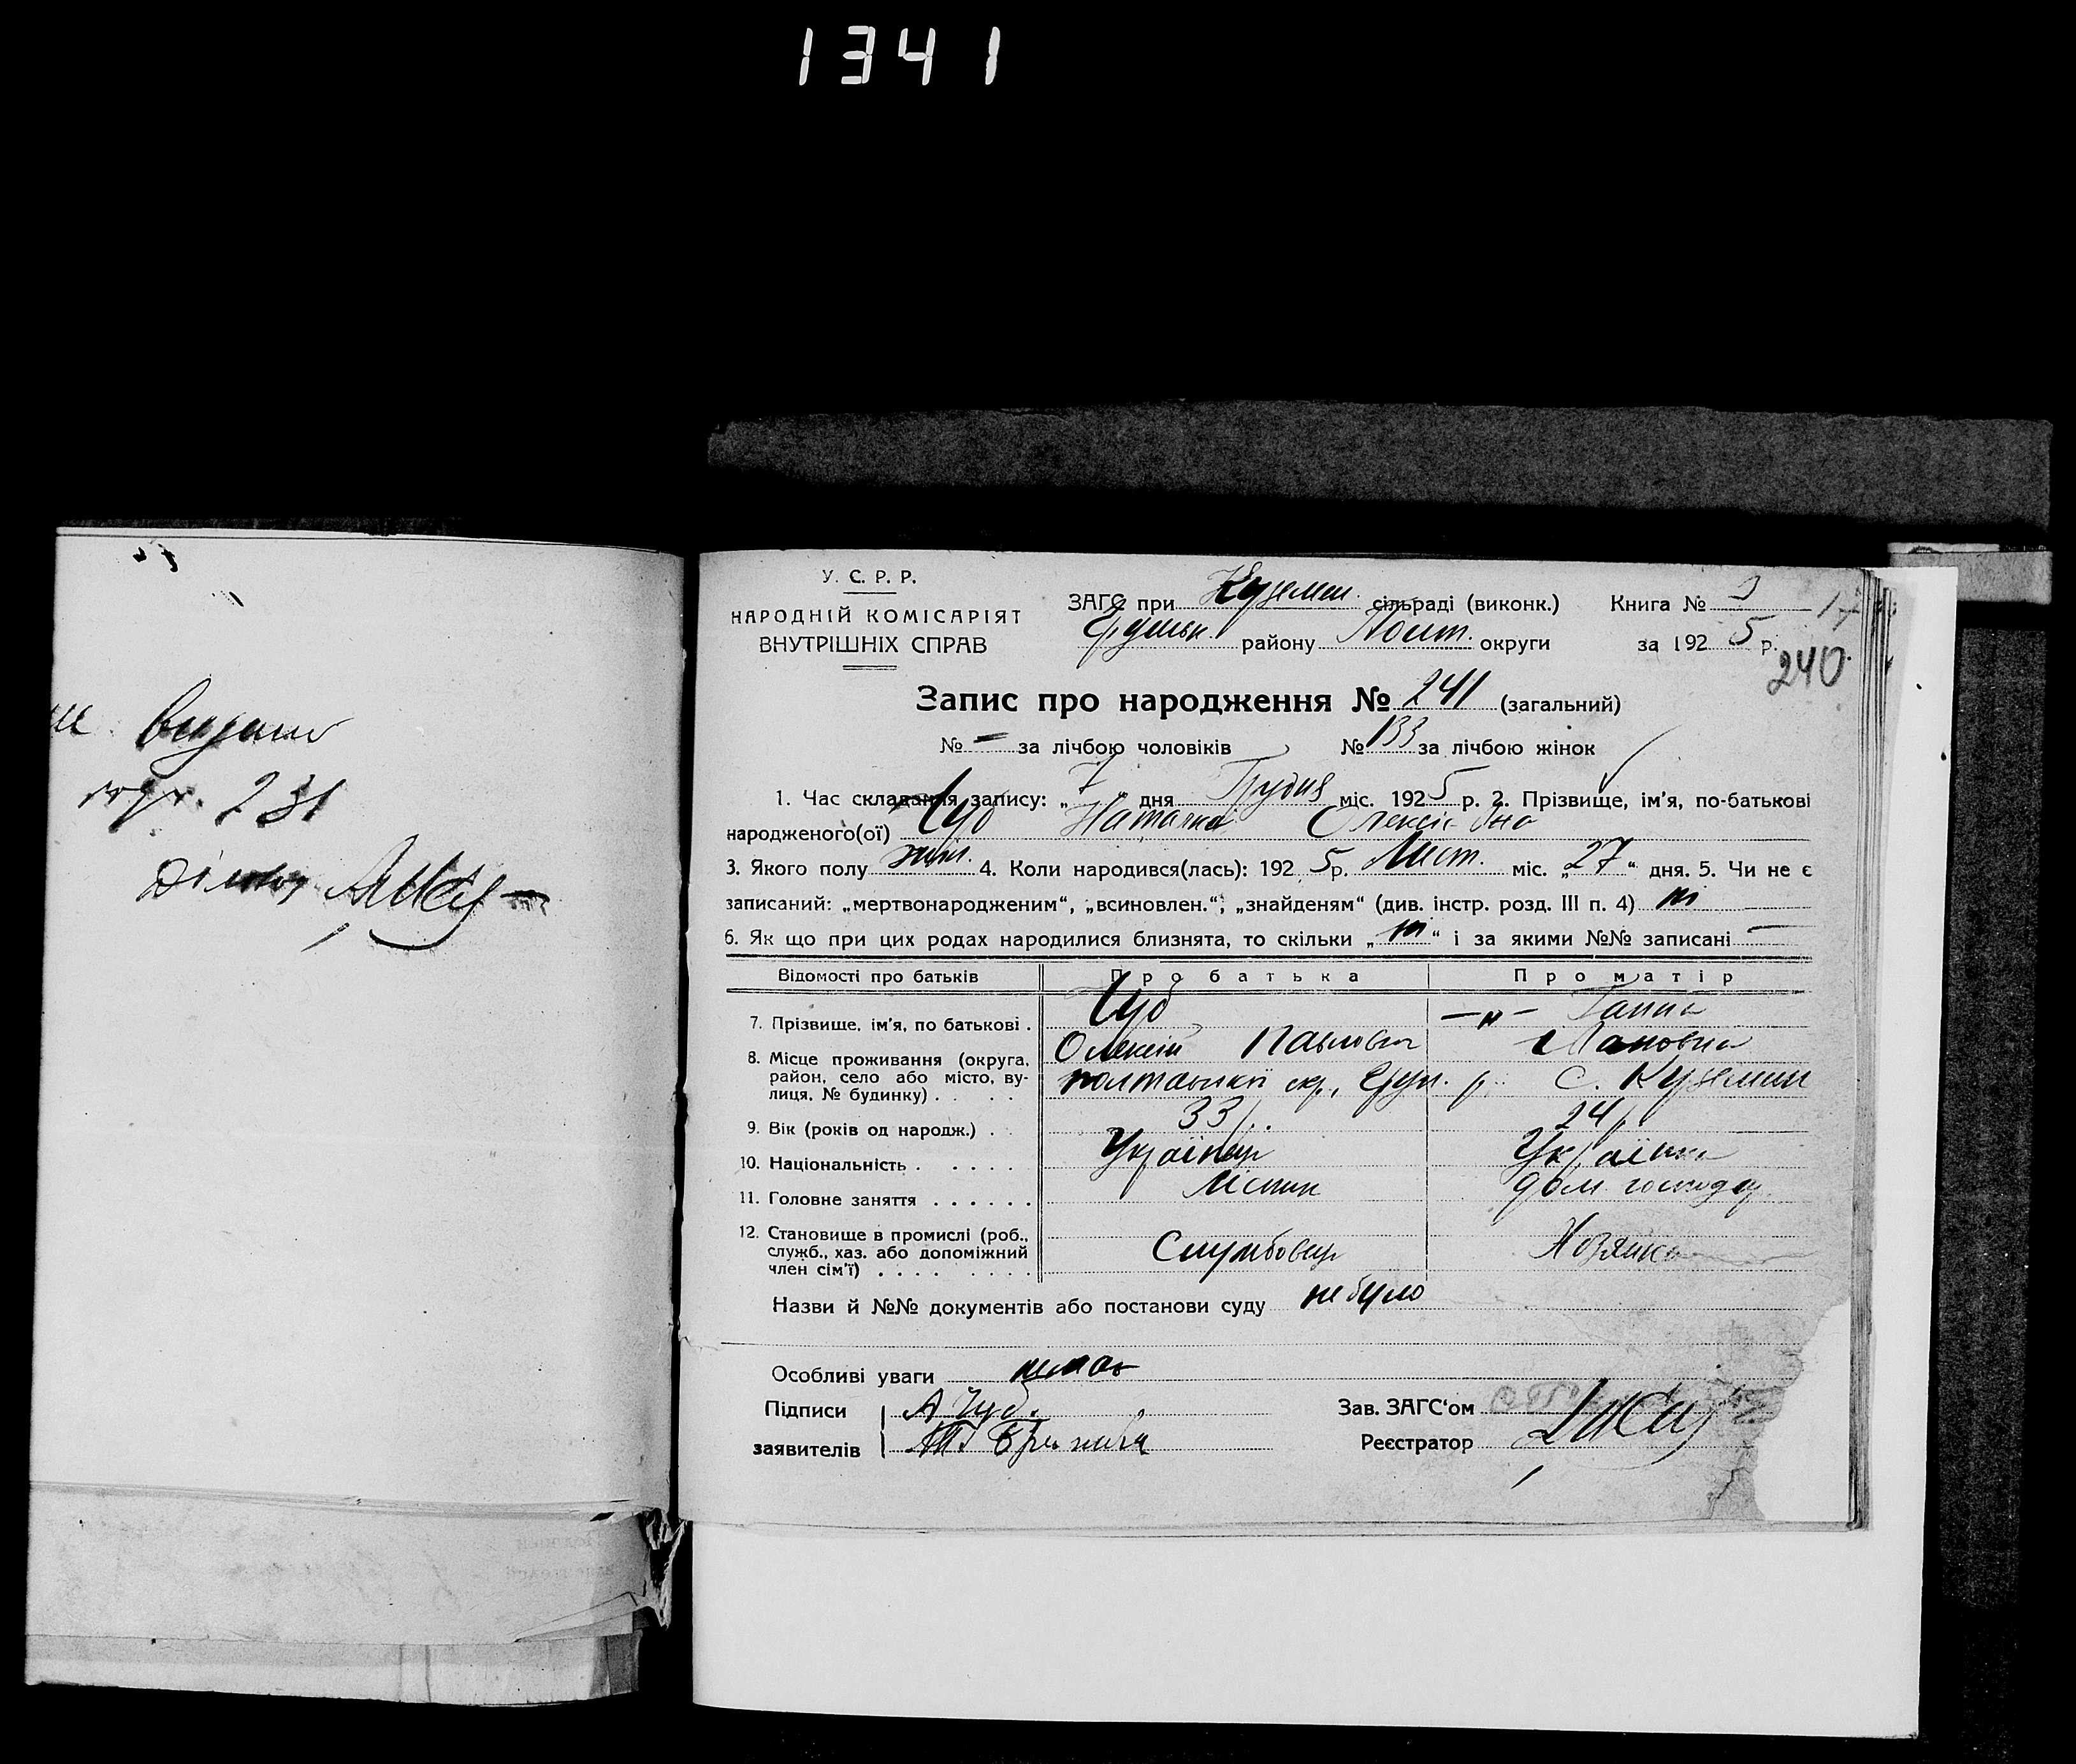 1341
видано
231
У. С. Р. Р.
НАРОДНІЙ КОМІСАРІЯТ
ВНУТРІШНІХ СПРАВ
ЗАГС при Куземин. сільраді (виконк.)
районy Полт. округи
Книга №
за 1925 р.
240
Запис про народження № 241 (загальний)
№ – за лічбою чоловіків № 133 за лічбою жінок
1. Час складання запису: „7“ дня Грудня міс. 1925 р. 2. Прізвище, ім'я, по-батькові
народженого(ої) Чуб Наталка Олексіївна
3. Якого полу жін. 4. Коли народився(лась): 1925 р. Лист. міс. „27“ дня. 5. Чи не є
записаний: „мертвонародженим“, „всиновлен.“, „знайденям“ (див. інстр. розд. III п. 4) ні
6. Як що при цих родах народилися близнята, то скільки „ні“ і за якими №№ записані –
Відомості про батьків Про батька Про матір
7. Прізвище, ім'я, по батькові . Чуб Олексій Павлович –„– Ганна
8. Місце проживання (округа, район, село або місто, вулиця, № будинку) . . . . Полтавської окр., Грун. р. с. Куземин
9. Вік (років од народж.) . . 33 р. 24 р.
10. Національність . . . . . . Українець Українка
11. Головне заняття . . . . . . дом. господар.
12. Становище в промислі (роб., служб., хаз. або допоміжний член сім'ї) . . . . . . . . Службовець Хозяйка
Назви й №№ документів або постанови суду не було
Особливі уваги немає
Підписи А Чуб.
заявителів
Зав. ЗАГС'ом
Реєстратор